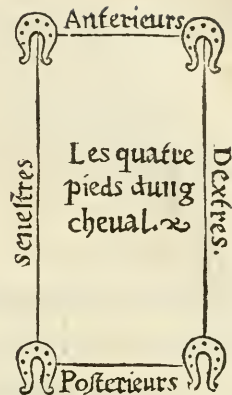 Anterieurs
seneſtres
Les quatre
pieds dung
cheual.
Dextres.
Poſterieurs